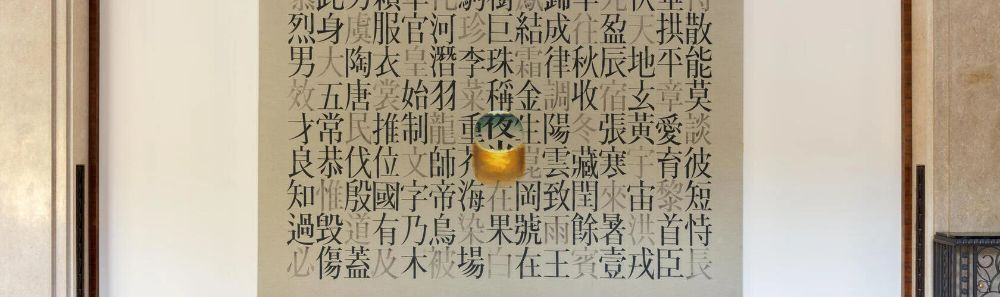 散能莫談彼短恃長
垂拱平章愛育黎首臣
伏天地玄黃宇宙洪戎
盈辰宿張寒來暑壹
率往秋收冬藏閏餘賓
歸成律調陽雲致雨王
鳳結霜金生崑岡號在
樹巨珠稱夜光在果白
駒珍李菜重芥海染場
化河潛羽龍師帝鳥被
草官皇始制文字乃木
賴服衣裳推位國有及
方虞陶唐民伐殷道蓋
此身大五常恭惟毀傷
烈男效才良知過必